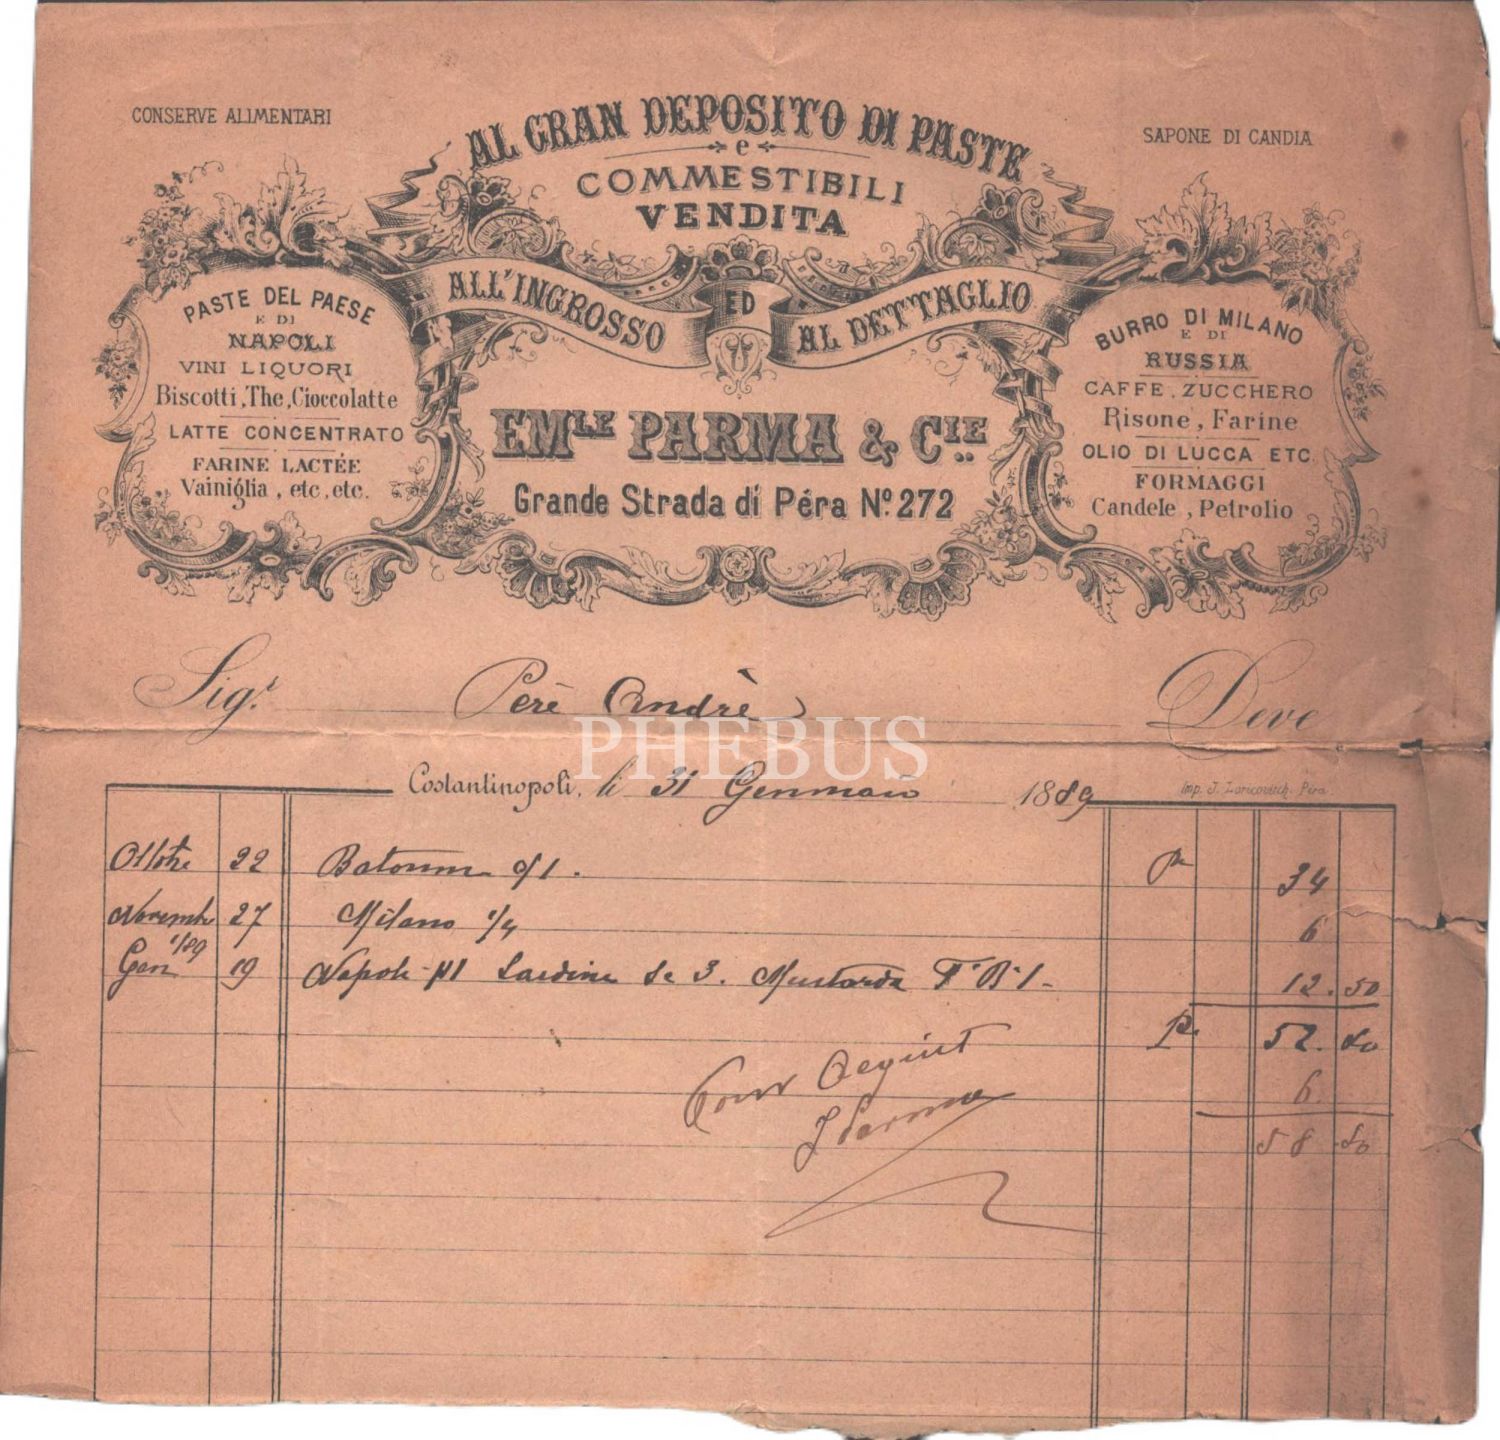 CONSERVE ALIMENTARI
SAPONE DI CANDIA
AL GRAN DEPOSITO DI PASTE
e
COMMESTIBILI
VENDITA
ALL'INGROSSO ED AL DETTAGLIO
PASTE DEL PAESE
E DI
NAPOLI
VINI LIQUORI
Biscotti, The, Cioccolatte
LATTE CONCENTRATO
FARINE LACTÉE
Vainiglia, etc, etc.
EMLE PARMA & CIE
Grande Strada di Péra No. 272
BURRO DI MILANO
E DI
RUSSIA
CAFFE, ZUCCHERO
Risone, Farine
OLIO DI LUCCA ETC.
FORMAGGI
Candele, Petrolio
Sigr. Perè Andrè Deve
PHEBUS
Costantinopoli, li 31 Gennaio 1889
Imp. J. Zaricovitch. Péra.
22 Batoum 34
27 Milano 1/4 6
1/89
Gen 19 Napoli Sardine Sc 3. Mustarda F. B. 1- 12.50
P. 52.50
6
58.50
Pour Acquit